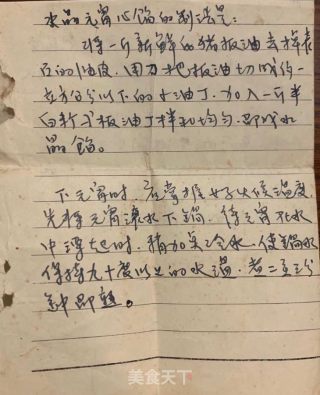 水晶元宵心馅的制法是:
将一斤新鲜的猪板油去掉表
面的油皮,用刀把板油切成约一
立方公分以下的小油丁,加入一斤半
白糖与板油丁拌和均匀,即成水
晶馅。
下元宵时,应掌握好火候温度,
先将元宵滚水下锅,待元宵在水
中漂起时,稍加点冷水,使锅水
保持九十度以上的水温,煮二至三分
钟即熟。
美食天下